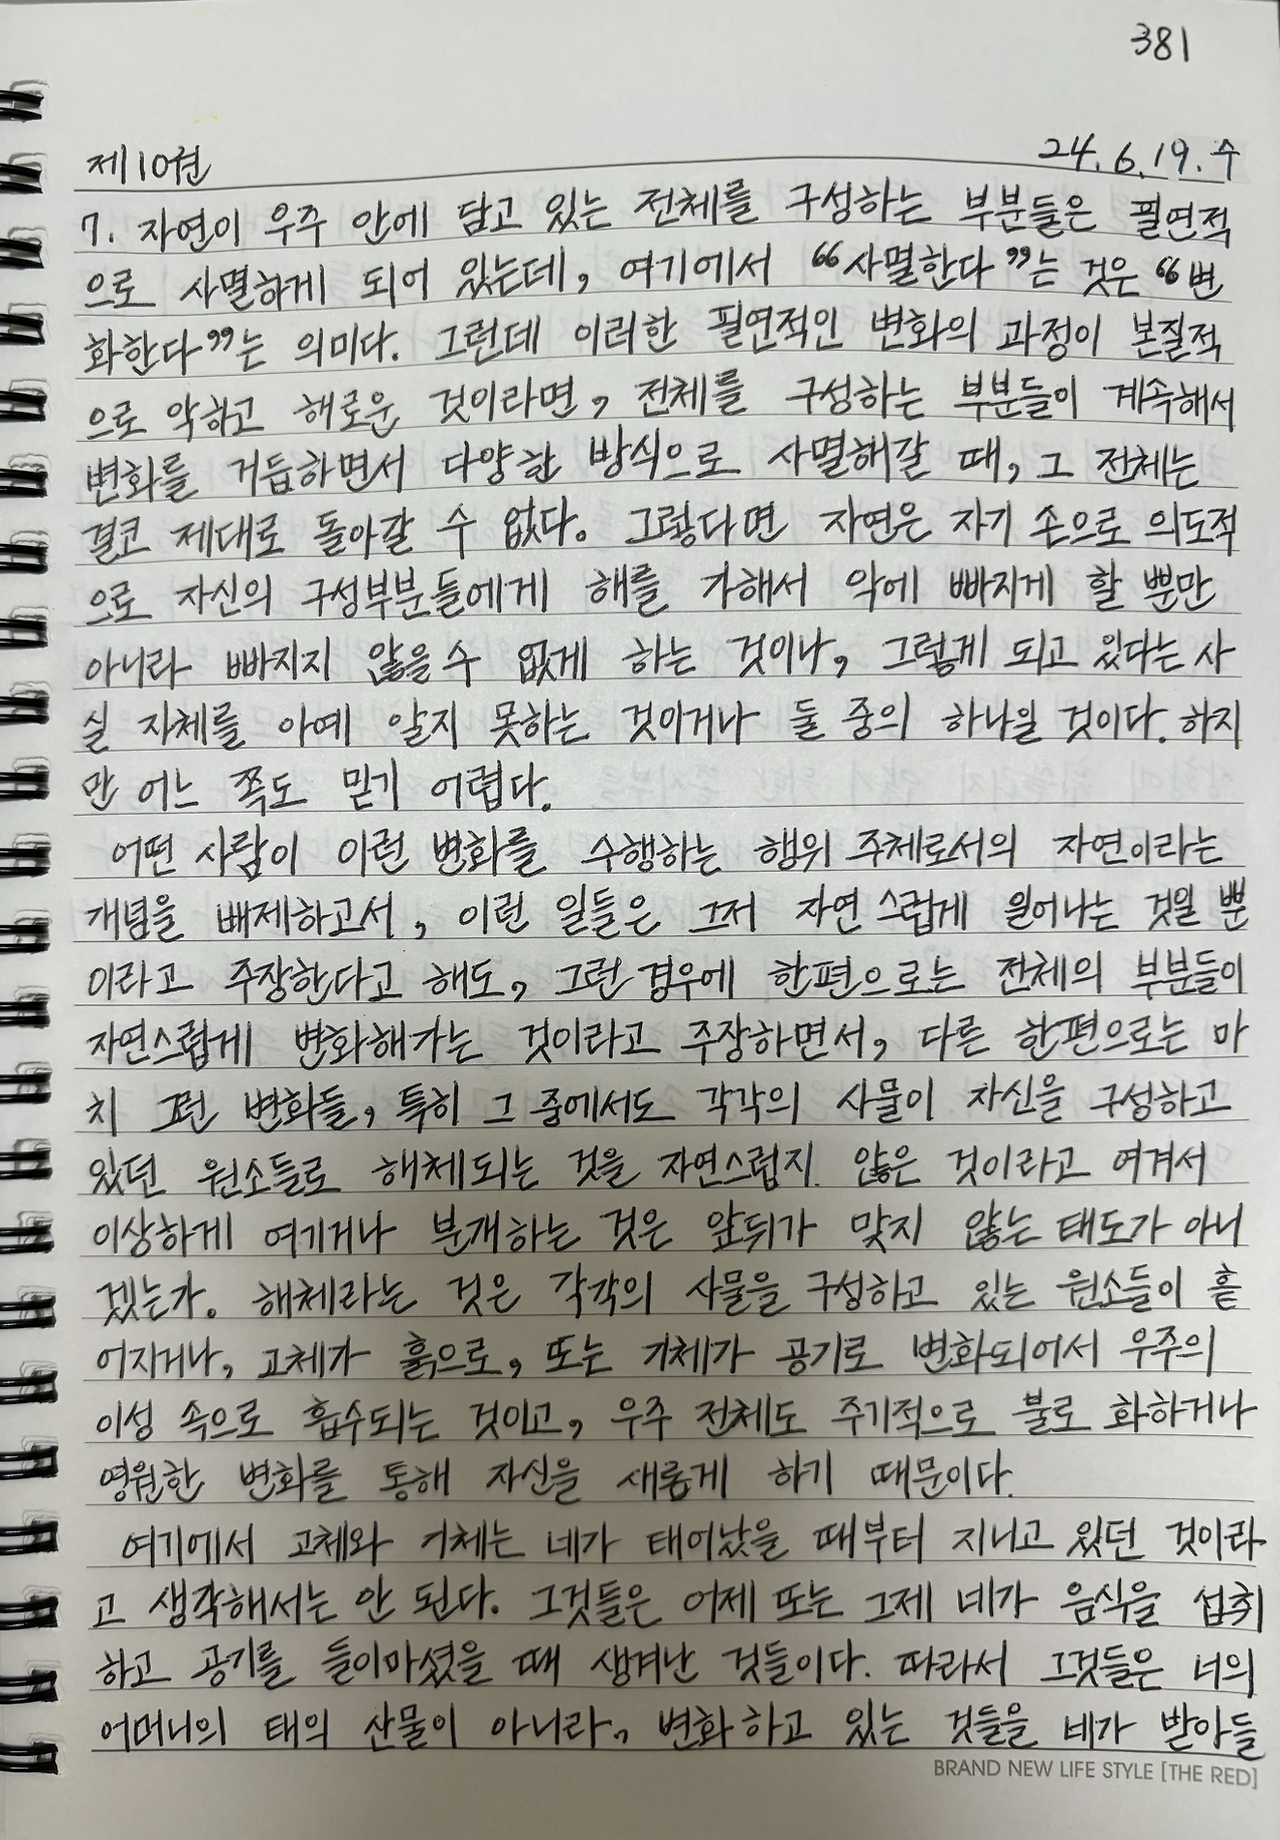 381
제10권 24.6.19.수
7. 자연이 우주 안에 담고 있는 전체를 구성하는 부분들은 필연적
으로 사멸하게 되어 있는데, 여기에서 “사멸한다”는 것은 “변
화한다”는 의미다. 그런데 이러한 필연적인 변화의 과정이 본질적
으로 악하고 해로운 것이라면, 전체를 구성하는 부분들이 계속해서
변화를 거듭하면서 다양한 방식으로 사멸해갈 때, 그 전체는
결코 제대로 돌아갈 수 없다. 그렇다면 자연은 자기 손으로 의도적
으로 자신의 구성부분들에게 해를 가해서 악에 빠지게 할 뿐만
아니라 빠지지 않을수 없게 하는 것이나, 그렇게 되고 있다는 사
실 자체를 아예 알지 못하는 것이거나 둘 중의 하나일 것이다. 하지
만 어느 쪽도 믿기 어렵다.
어떤 사람이 이런 변화를 수행하는 행위 주체로서의 자연이라는
개념을 배제하고서, 이런 일들은 그저 자연스럽게 일어나는 것일 뿐
이라고 주장한다고 해도, 그런 경우에 한편으로는 전체의 부분들이
자연스럽게 변화해가는 것이라고 주장하면서, 다른 한편으로는 마
치 그런 변화들, 특히 그 중에서도 각각의 사물이 자신을 구성하고
있던 원소들로 해체되는 것을 자연스럽지 않은 것이라고 여겨서
이상하게 여기거나 분개하는 것은 앞뒤가 맞지 않는 태도가 아니
겠는가. 해체라는 것은 각각의 사물을 구성하고 있는 원소들이 흩
어지거나, 고체가 흙으로, 또는 기체가 공기로 변화되어서 우주의
이성 속으로 흡수되는 것이고, 우주 전체도 주기적으로 불로 화하거나
영원한 변화를 통해 자신을 새롭게 하기 때문이다.
여기에서 고체와 기체는 네가 태어났을 때부터 지니고 있던 것이라
고 생각해서는 안 된다. 그것들은 어제 또는 그제 네가 음식을 섭취
하고 공기를 들이마셨을 때 생겨난 것들이다. 따라서 그것들은 너의
어머니의 태의 산물이 아니라, 변화하고 있는 것들을 네가 받아들
BRAND NEW LIFE STYLE [THE RED]